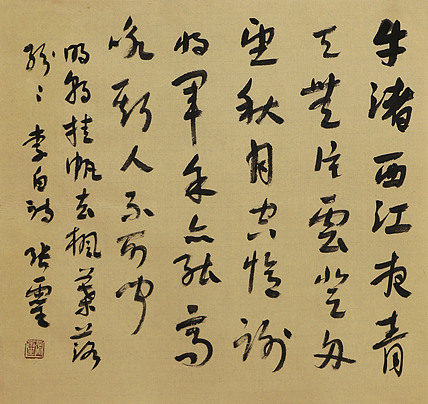 牛渚西江夜青
天無片雲登舟
望秋月空憶謝
將軍余亦能高
詠斯人不可聞
明朝挂帆去楓葉落
紛〻李白詩 張靈